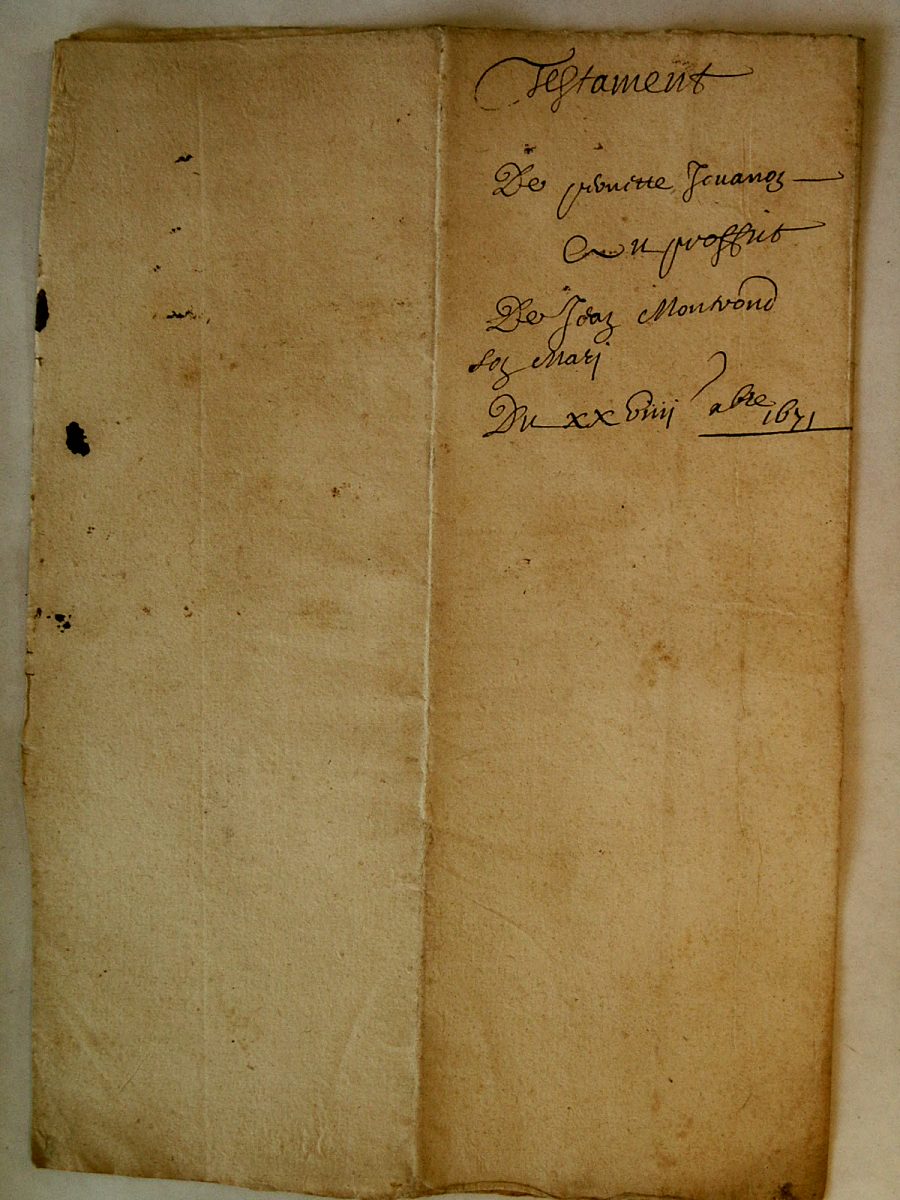 Testament
De pernette Jouanon
Au proffict
De Jean Montrond
Son Mari
Du xxviiii bre 1671